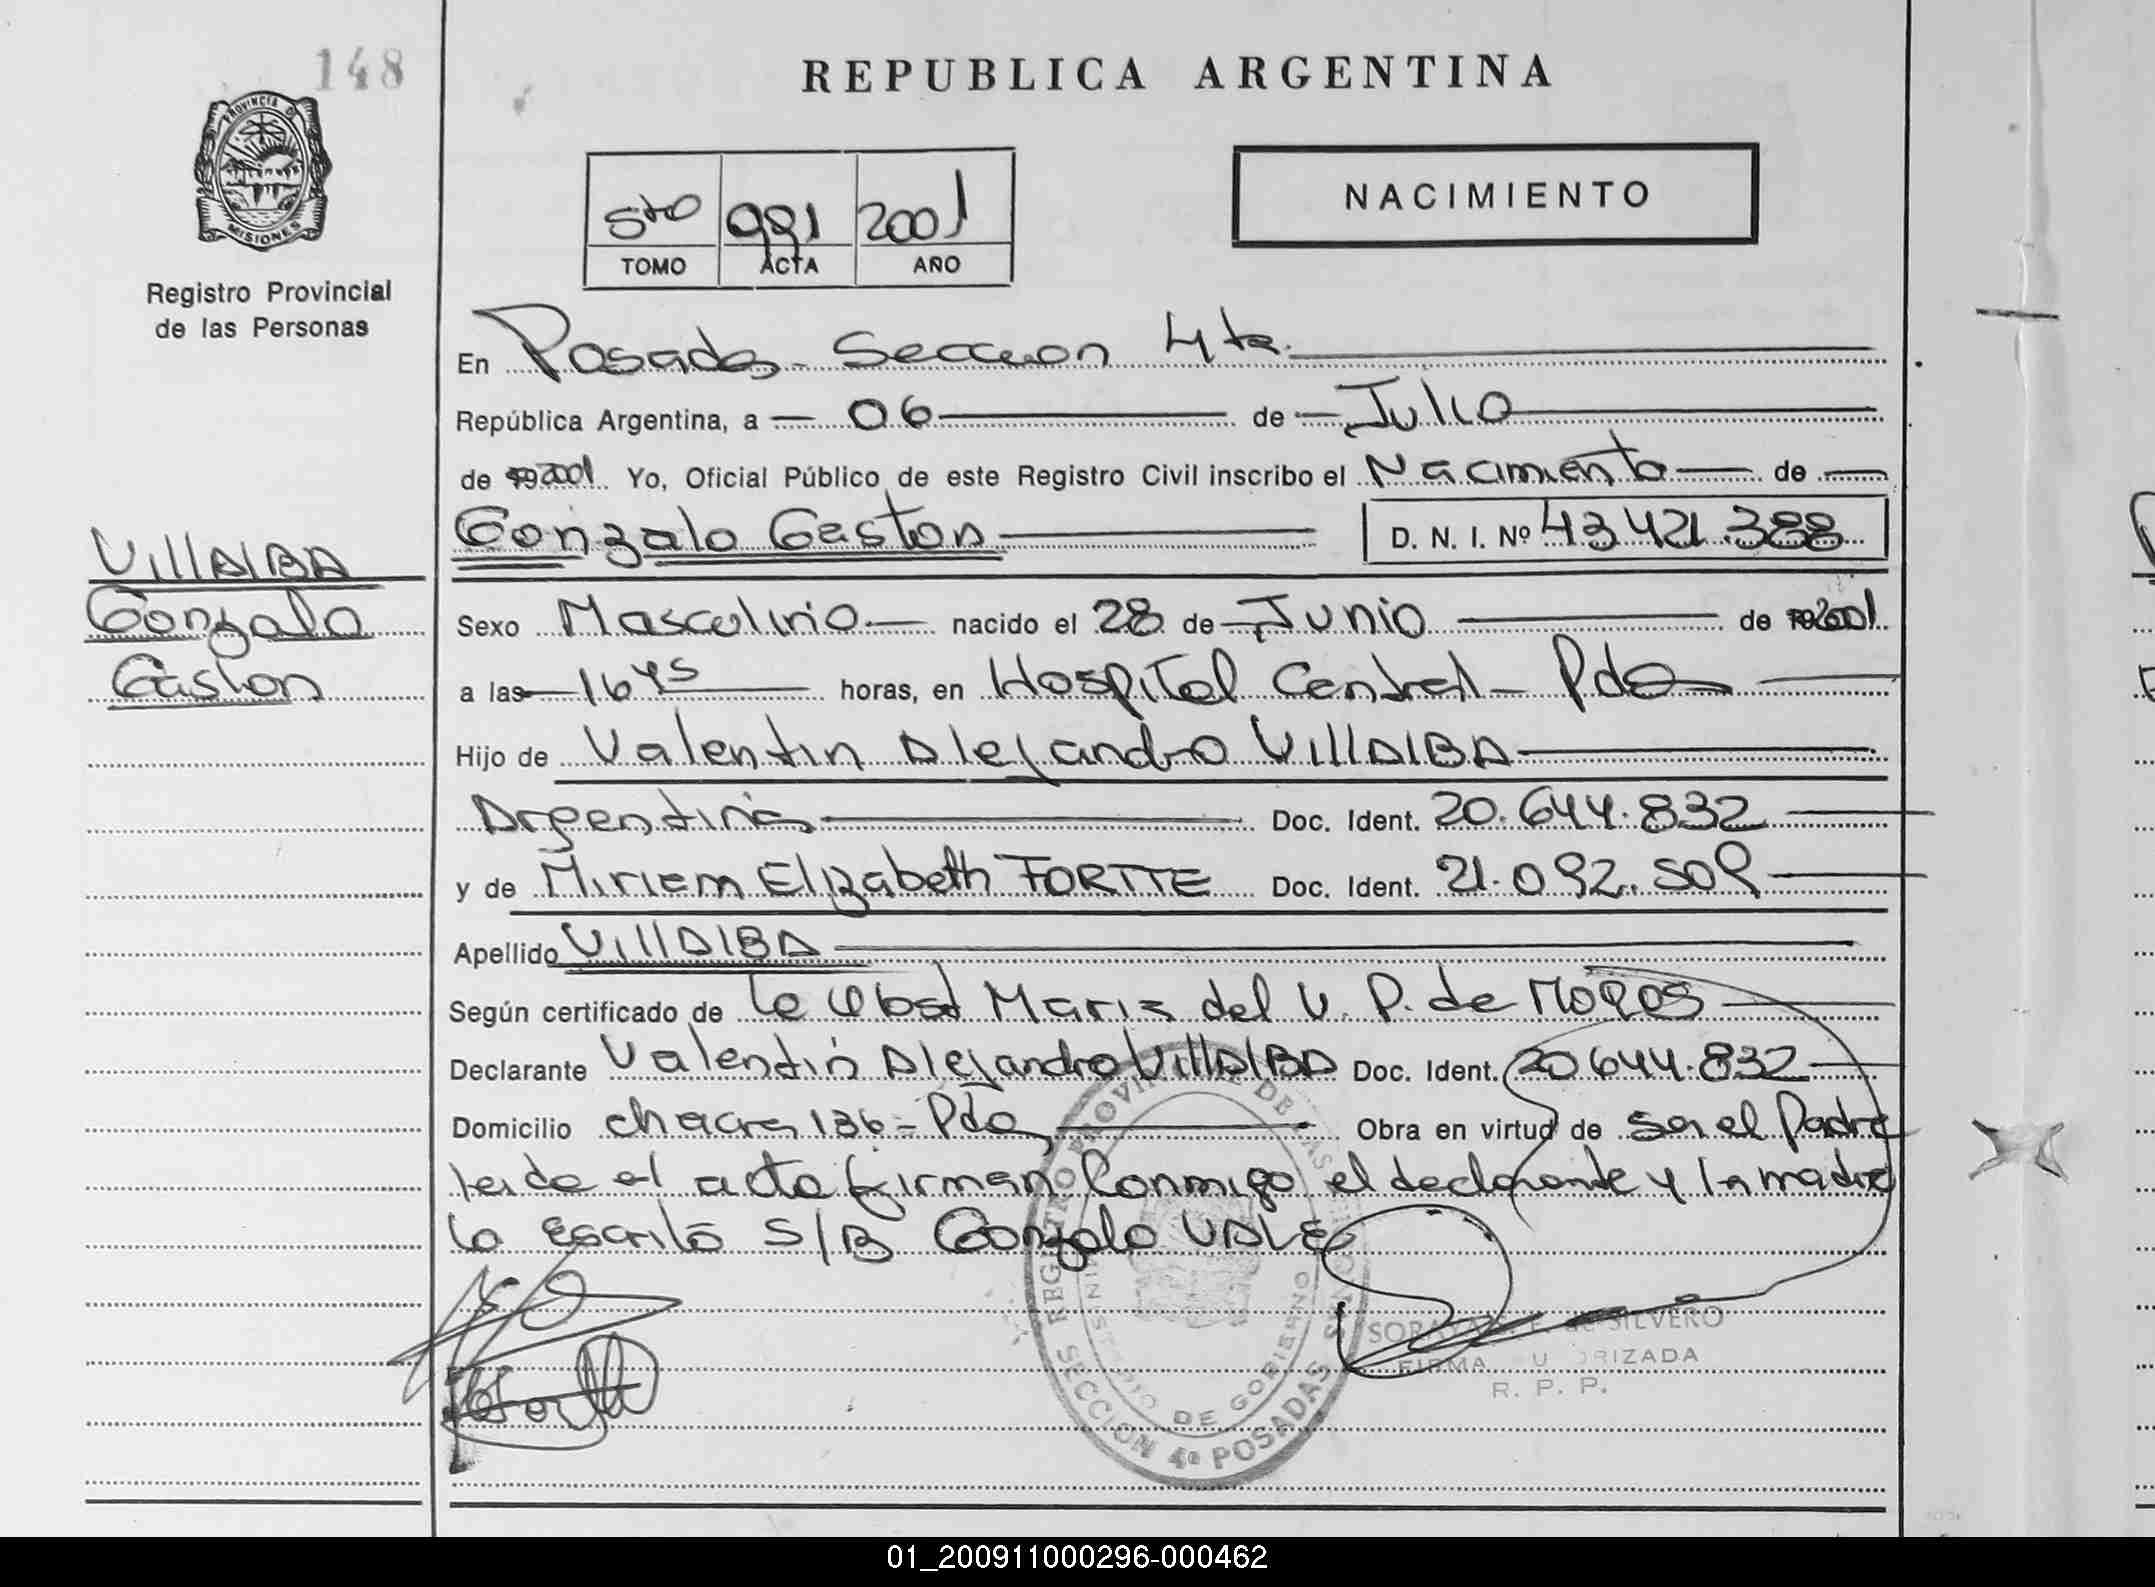 148
REPUBLICA ARGENTINA
PROVINCIA D
MISIONES
Registro Provincial
de las Personas
5to 991 2001
TOMO ACTA AÑO
NACIMIENTO
En Posadas - Seccion 4ta.
República Argentina, a 06 de Julio
de 2001 Yo, Oficial Público de este Registro Civil inscribo el Nacimiento de
Gonzalo Gaston D. N. I. Nº 43 421.388
VIllAlBA
Gonzalo
Gaston
Sexo Masculino nacido el 28 de Junio de 2001
a las 16 45 horas, en Hospital Central - Pdas
Hijo de Valentin Alejandro VIllAlBA
Argentina Doc. Ident. 20.644.832
y de Miriam Elizabeth FORTTE Doc. Ident. 21.092.509
Apellido VIllAlBA
Según certificado de la Obst Maria del V. P. de MOROS
Declarante Valentin Alejandro VIllAlBA Doc. Ident. 20 644.832
Domicilio chacra 136 - Pdas Obra en virtud de ser el Padre
leida el acta firman Conmigo el declarante y la madre
lo escrito S/B Gonzalo VALE
REGISTRO PROVINCIAL DE LAS PERSONAS
MINISTERIO DE GOBIERNO
SECCION 4ª POSADAS
SORAYA de SILVERO
FIRMA AUTORIZADA
R. P. P.
01_200911000296-000462